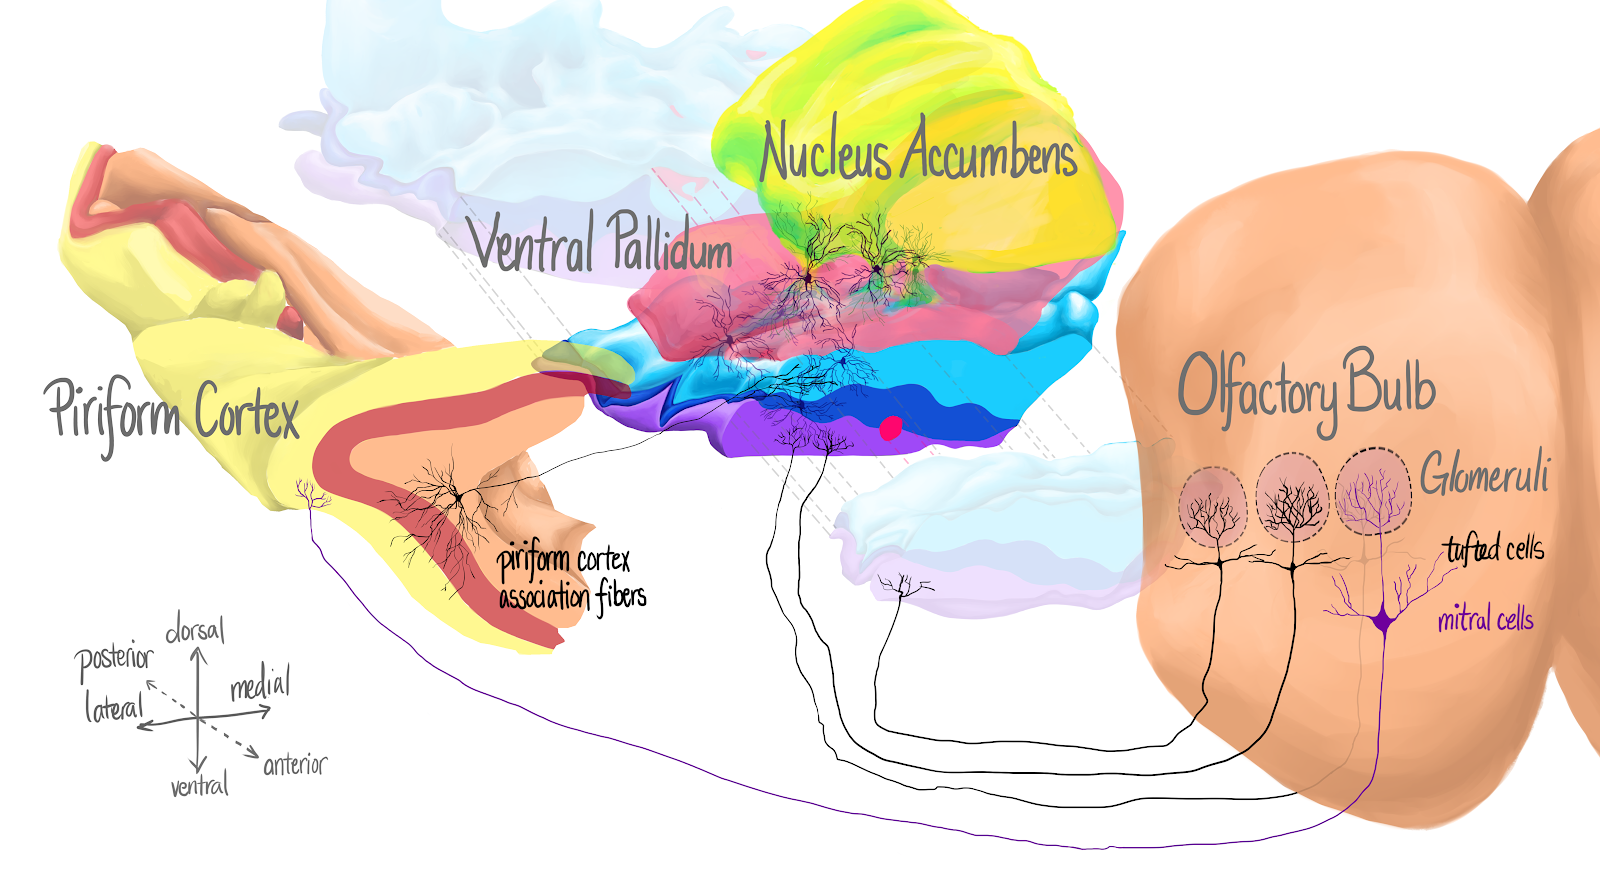 Nucleus Accumbens
Ventral Pallidum
Piriform Cortex
Olfactory Bulb
Glomeruli
tufted cells
mitral cells
piriform cortex
association fibers
dorsal
posterior
medial
lateral
anterior
ventral